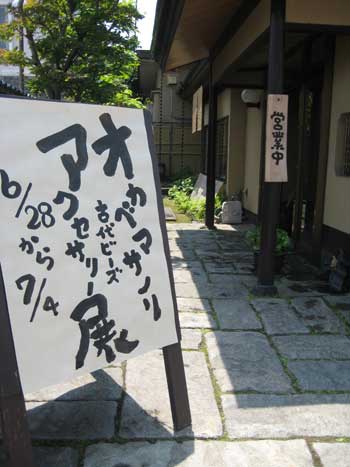 オカベマサノリ
古代ビーズ
アクセサリー展
6/28から7/4
営業中